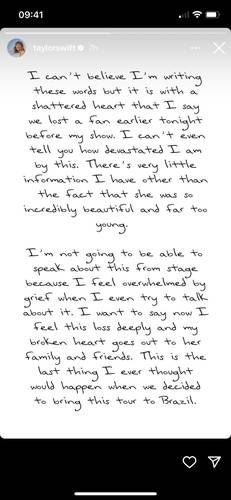 09:41
taylorswift 7h
I can't believe I'm writing
these words but it is with a
shattered heart that I say
we lost a fan earlier tonight
before my show. I can't even
tell you how devastated I am
by this. There's very little
information I have other than
the fact that she was so
incredibly beautiful and far too
young.
I'm not going to be able to
speak about this from stage
because I feel overwhelmed by
grief when I even try to talk
about it. I want to say now I
feel this loss deeply and my
broken heart goes out to her
family and friends. This is the
last thing I ever thought
would happen when we decided
to bring this tour to Brazil.